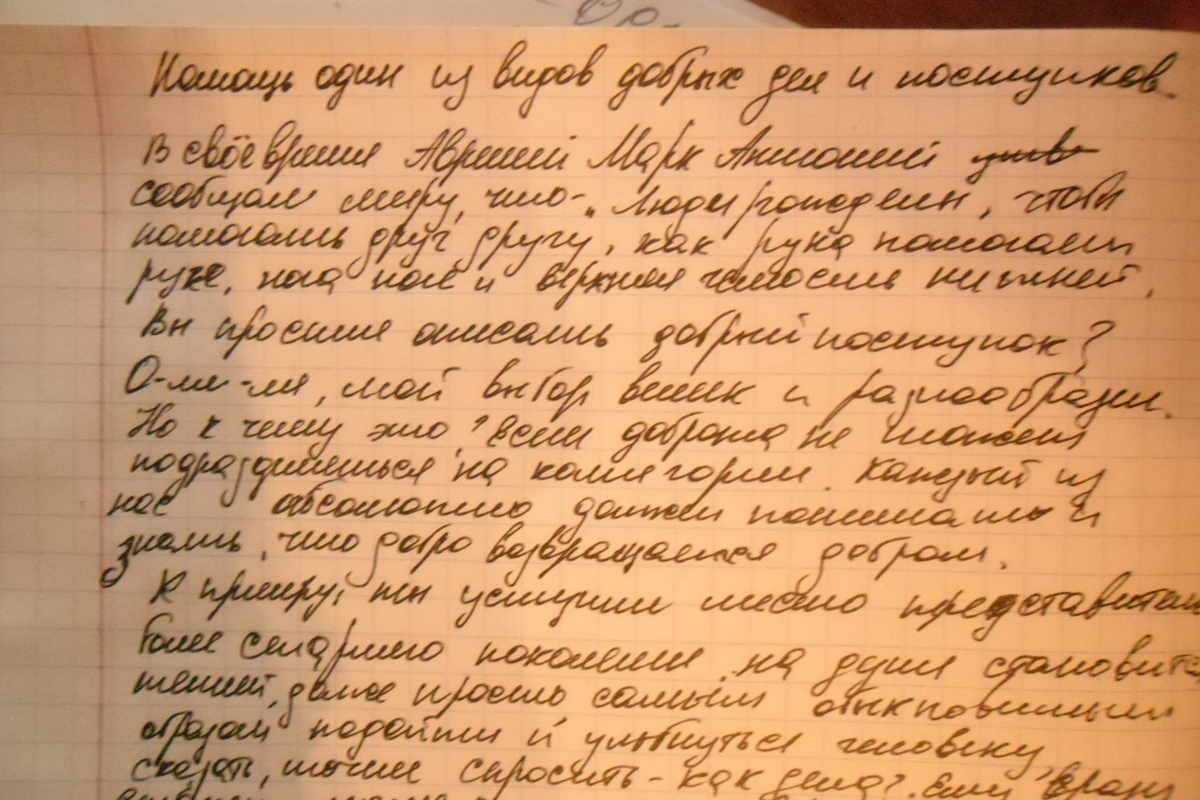 Помощь один из видов добрых дел и поступков.
В своё время Аврелий Марк Антоний
сообщал миру, что - "Люди рождены, чтобы
помогать друг другу, как рука помогает
руке, нога ноге и верхняя челюсть нижней.
Вы просите описать добрый поступок?
О-ля-ля, мой выбор велик и разнообразен.
Но к чему это? Ведь доброта не может
подразделяться на категории. Каждый из
нас абсолютно должен понимать и
знать, что добро возвращается добром.
К примеру, ты уступил место представителю
более старшего поколения, на душе становится
теплей, даже просто самым обыкновенным
образом подойти и улыбнуться человеку
сказать, точнее спросить - как дела?. Ему